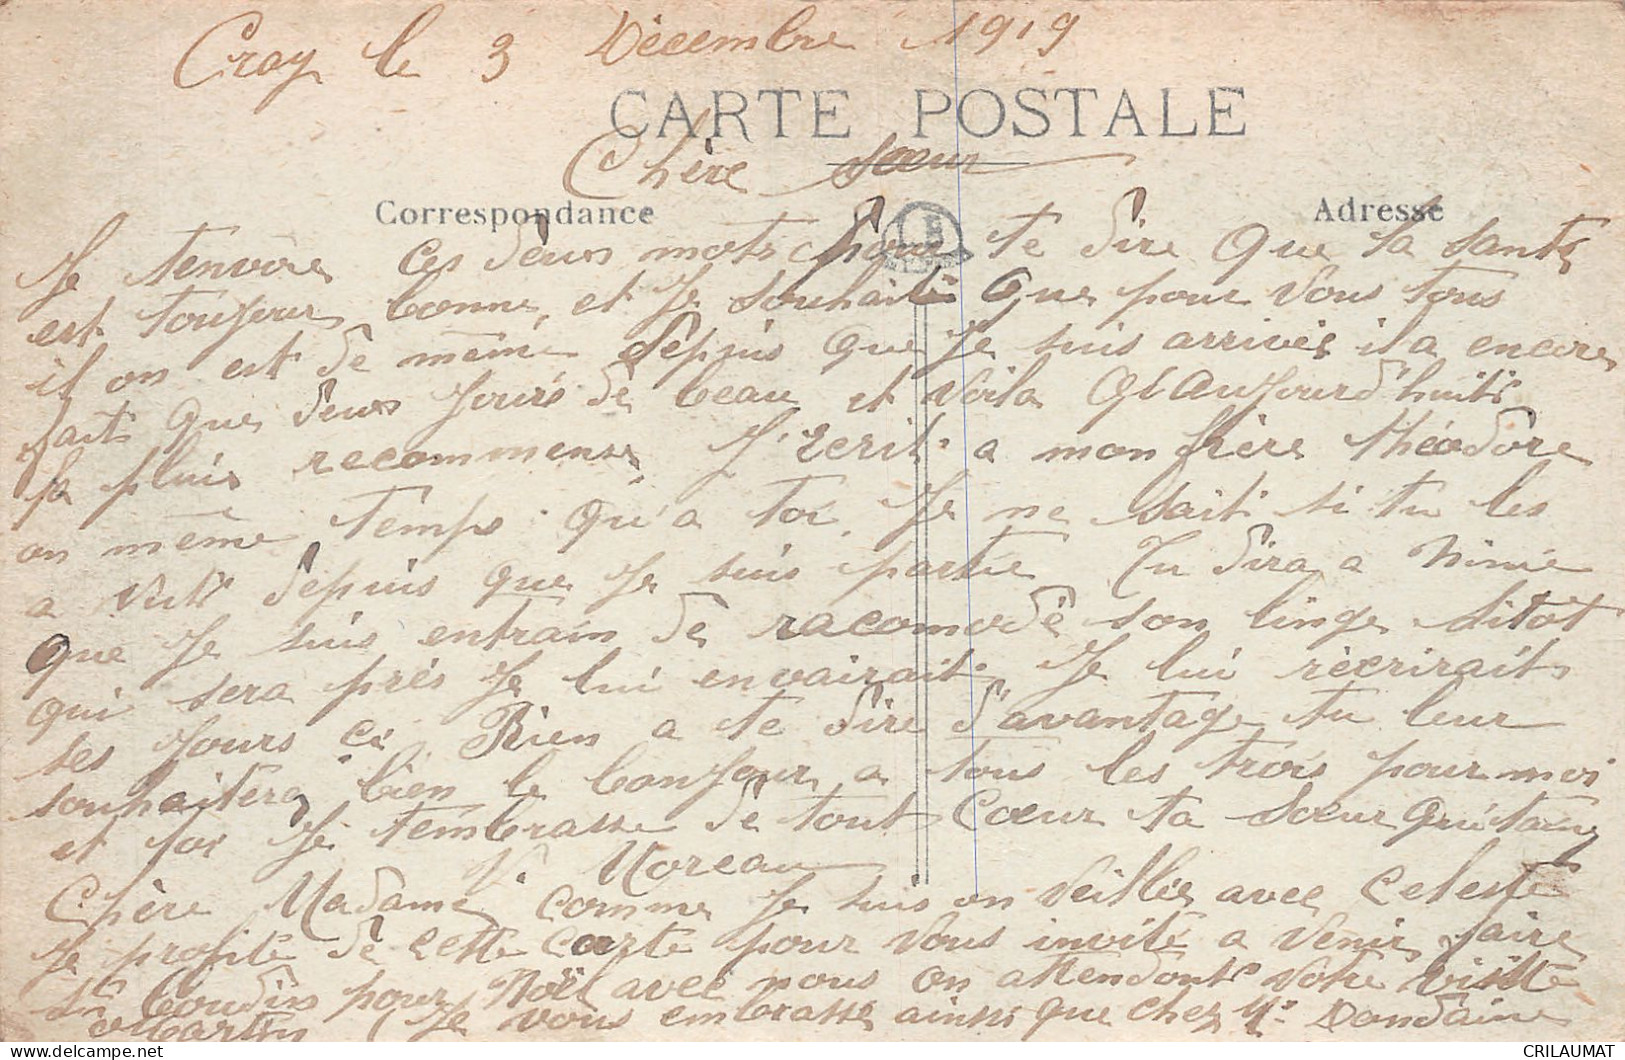 Cray le 3 Décembre 1919
CARTE POSTALE
Chère Sœur
Correspondance
Adresse
Je t'envoies ces deux mots pour te dire que la santé
est toujours bonne, et je souhaite que pour vous tous
il on est de même depuis que je suis arrivée il a encore
fait que deux jours de beau et voila qu'aujourd'huit
la pluie recommense J'écrit a mon frère théodore
on même temps qu'a toi. Je ne sait si tu les
a vut depuis que je suis partie Tu dira a Ninie
que je suis entrain de racomodé son linge sitot
qui sera près je lui envairait. Je lui réecrirait
ses jours ci Rien a te dire d'avantage tu leur
souhaitera bien le bonjour a tous les trois pour moi
et toi je t'embrasse de tout Cœur ta Sœur qui t'aime
V. Moreau
Chère Madame comme je suis on veillée avec Celeste
Je profite de cette carte pour vous invité a venir faire
du boudin pour Noël avec nous on attendont votre visite
Je vous embrasse ainsi que chez Mr Dondaine
CRILAUMAT